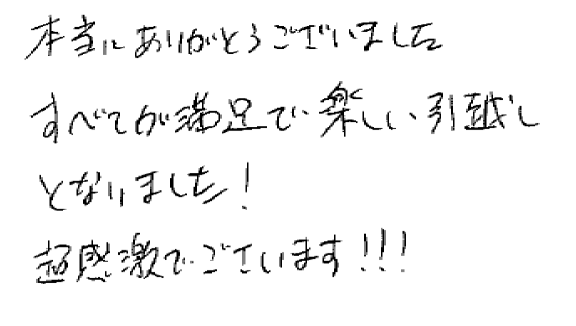 本当にありがとうございました
すべてが満足で楽しい引越し
となりました!
超感激でございます!!!